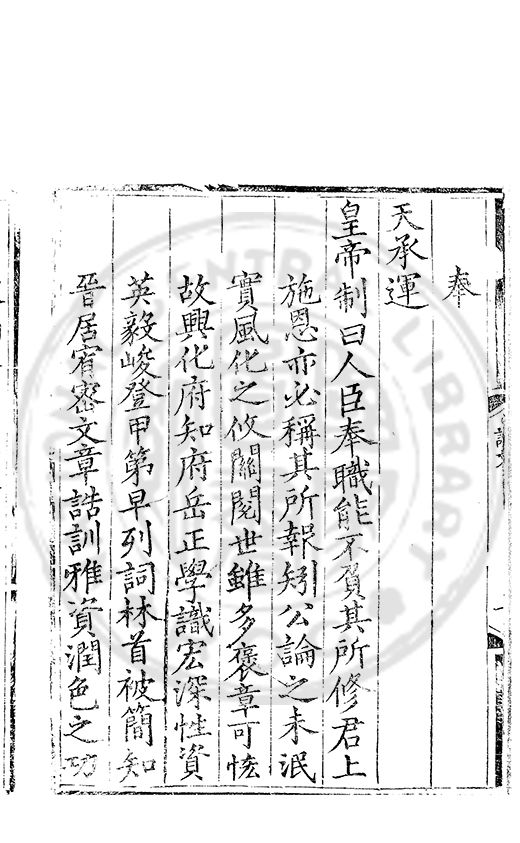 奉
天承運
皇帝制曰人臣奉職能不負其所修君上
施恩亦必稱其所報矧公論之未泯
實風化之攸關閱世雖多褒章可恡
故興化府知府岳正學識宏深性資
英毅峻登甲第早列詞林首被簡知
晉居宥密文章誥訓雅資潤色之功
CENTRAL LIBRARY